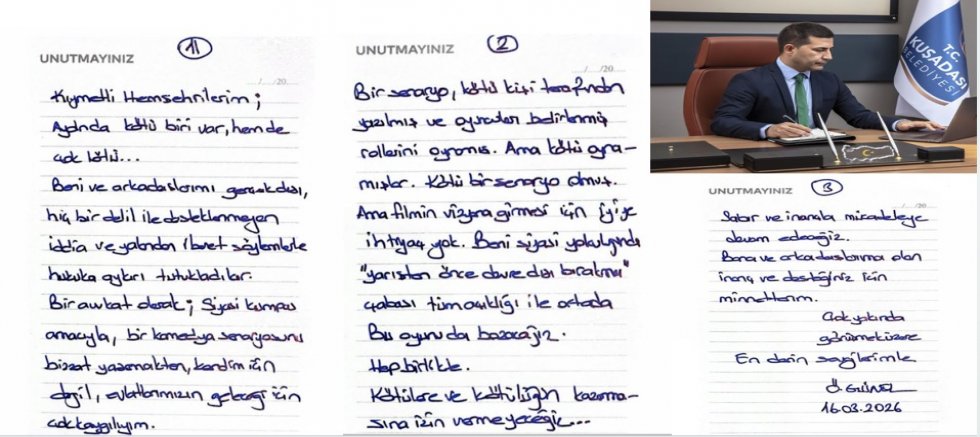 UNUTMAYINIZ
1
/ /20
Kıymetli Hemşehrilerim;
Aydında kötü biri var, hem de
çok kötü...
Beni ve arkadaşlarımı gerçek dışı,
hiç bir delil ile desteklenmeyen
iddia ve yalandan ibaret söylemlerle
hukuka aykırı tutukladılar.
Bir avukat olarak; Siyasi kumpas
amacıyla, bir komedya senaryosunu
bizzat yaşamaktan, kendim için
değil, evlatlarımızın geleceği için
çok kaygılıyım.
UNUTMAYINIZ
2
/ /20
Bir senaryo, kötü kişi tarafından
yazılmış ve oyuncuları belirlenmiş
rollerini oynamış. Ama kötü oyna-
mışlar. Kötü bir senaryo olmuş.
Ama filmin vizyona girmesi için iyiye
ihtiyaç yok. Beni siyasi yolculuğunda
"yarıştan önce devre dışı bırakma"
çabası tüm açıklığı ile ortada
Bu oyunu da bozacağız.
Hep birlikte.
Kötülere ve kötülüğün kazanma-
sına izin vermeyeceğiz...
T.C.
KUŞADASI
BELEDİYESİ
UNUTMAYINIZ
3
/ /20
Sabır ve inançla mücadeleye
devam edeceğiz.
Bana ve arkadaşlarıma olan
inanç ve desteğiniz için
minnettarım.
Çok yakında
görüşmek üzere
En derin saygılarımla
Ö. GÜNEL
16.03.2026